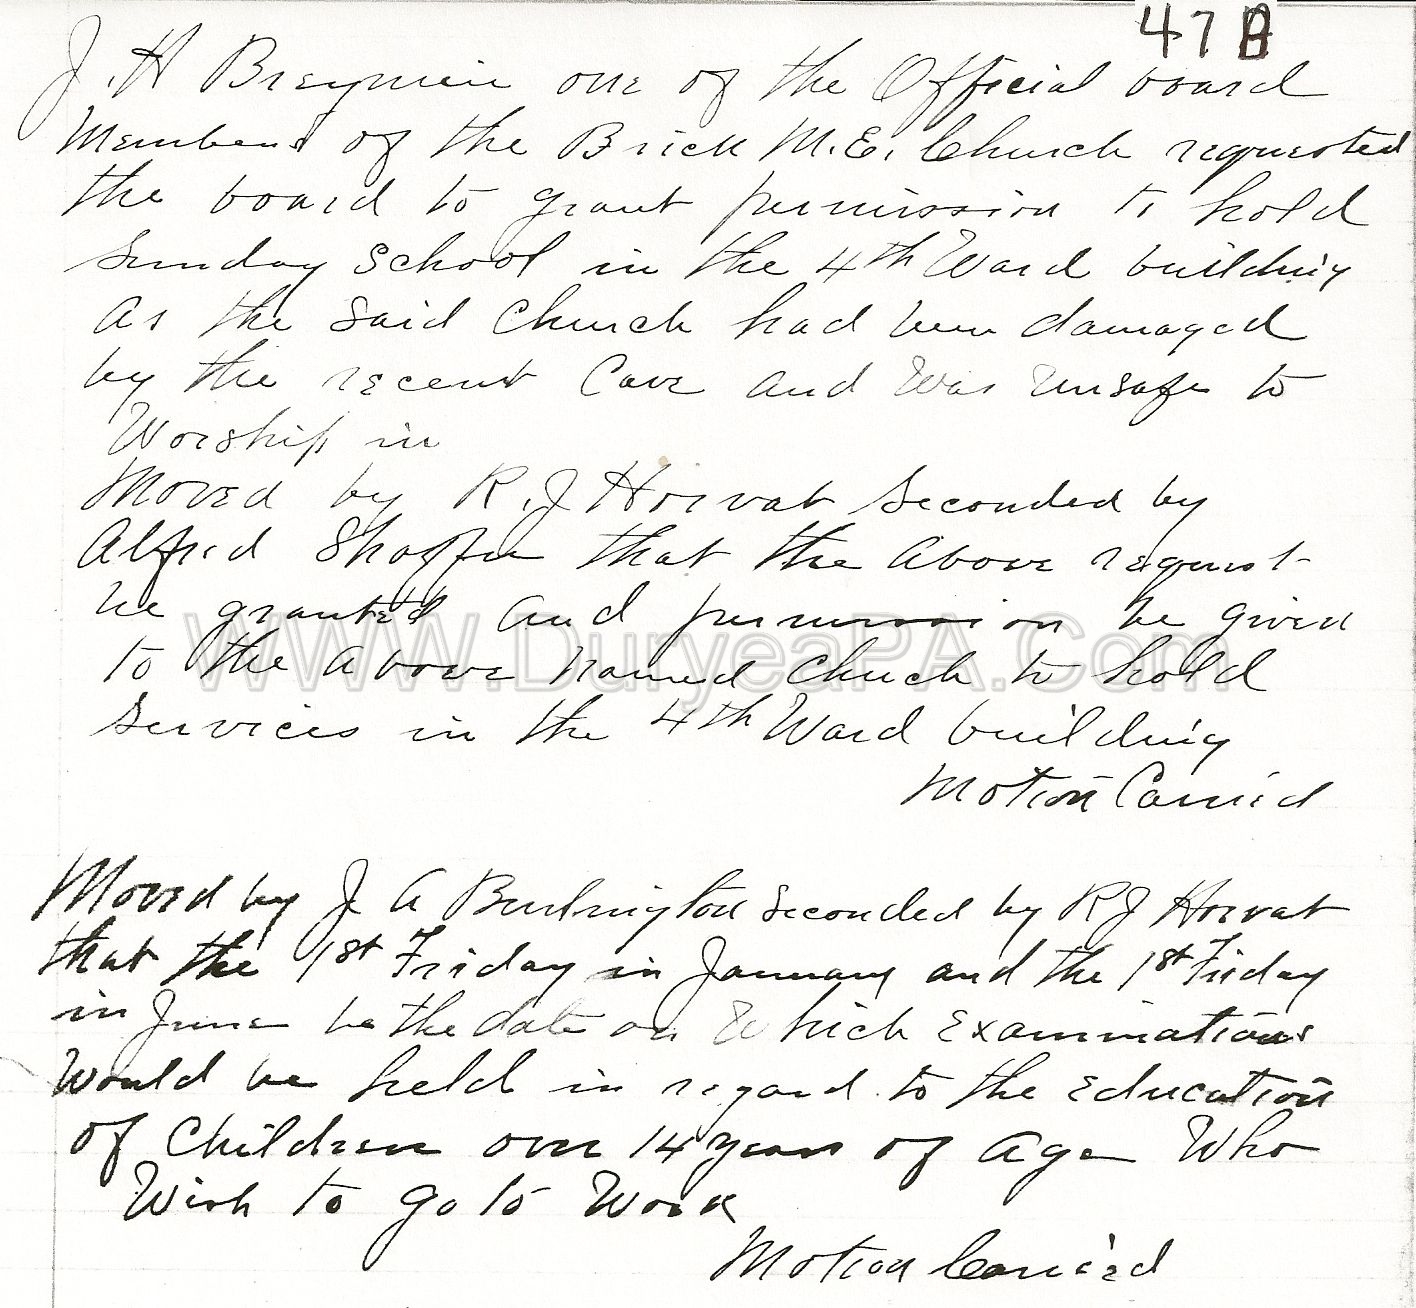 47 B
J. H Breymeir one of the Official board
Members of the Brick M.E. Church requested
the board to grant permission to hold
Sunday School in the 4th Ward building
As the Said Church had been damaged
by the recent Cave and Was Unsafe to
Worship in
Moved by R. J Horvat Seconded by
Alfred Shaffer that the Above request
be granted and permission be given
to the Above named Church to hold
Services in the 4th Ward building
Motion Carried
Moved by J A Burlington Seconded by R J Horvat
that the 1st Friday in January and the 1st Friday
in June be the date on Which Examinations
Would be held in regard to the Education
of Children over 14 years of Age Who
Wish to go to Work
Motion Carried
WWW.DuryeaPA.Com